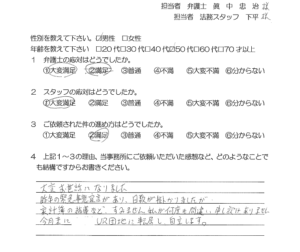 担当者 弁護士 眞中 忠治
担当者 法務スタッフ 下平
性別を教えて下さい。□男性 □女性
年齢を教えて下さい □20代□30代□40代□50代□60代□70才以上
1 弁護士の応対はどうでしたか。
①大変満足 ②満足 ③普通 ④不満 ⑤大変不満 ⑥分からない
2 スタッフの応対はどうでしたか。
①大変満足 ②満足 ③普通 ④不満 ⑤大変不満 ⑥分からない
3 ご依頼された件の進め方はどうでしたか。
①大変満足 ②満足 ③普通 ④不満 ⑤大変不満 ⑥分からない
4 上記1～3の理由、当事務所にご依頼いただいた感想など、どのようなことで
も結構ですからお書きください。
大変お世話になりました
があり、日数が掛かりましたが
家計簿の指導など、すみません私が何度も間違い申し訳ありません
今月末に UR団地に転居し自立します。